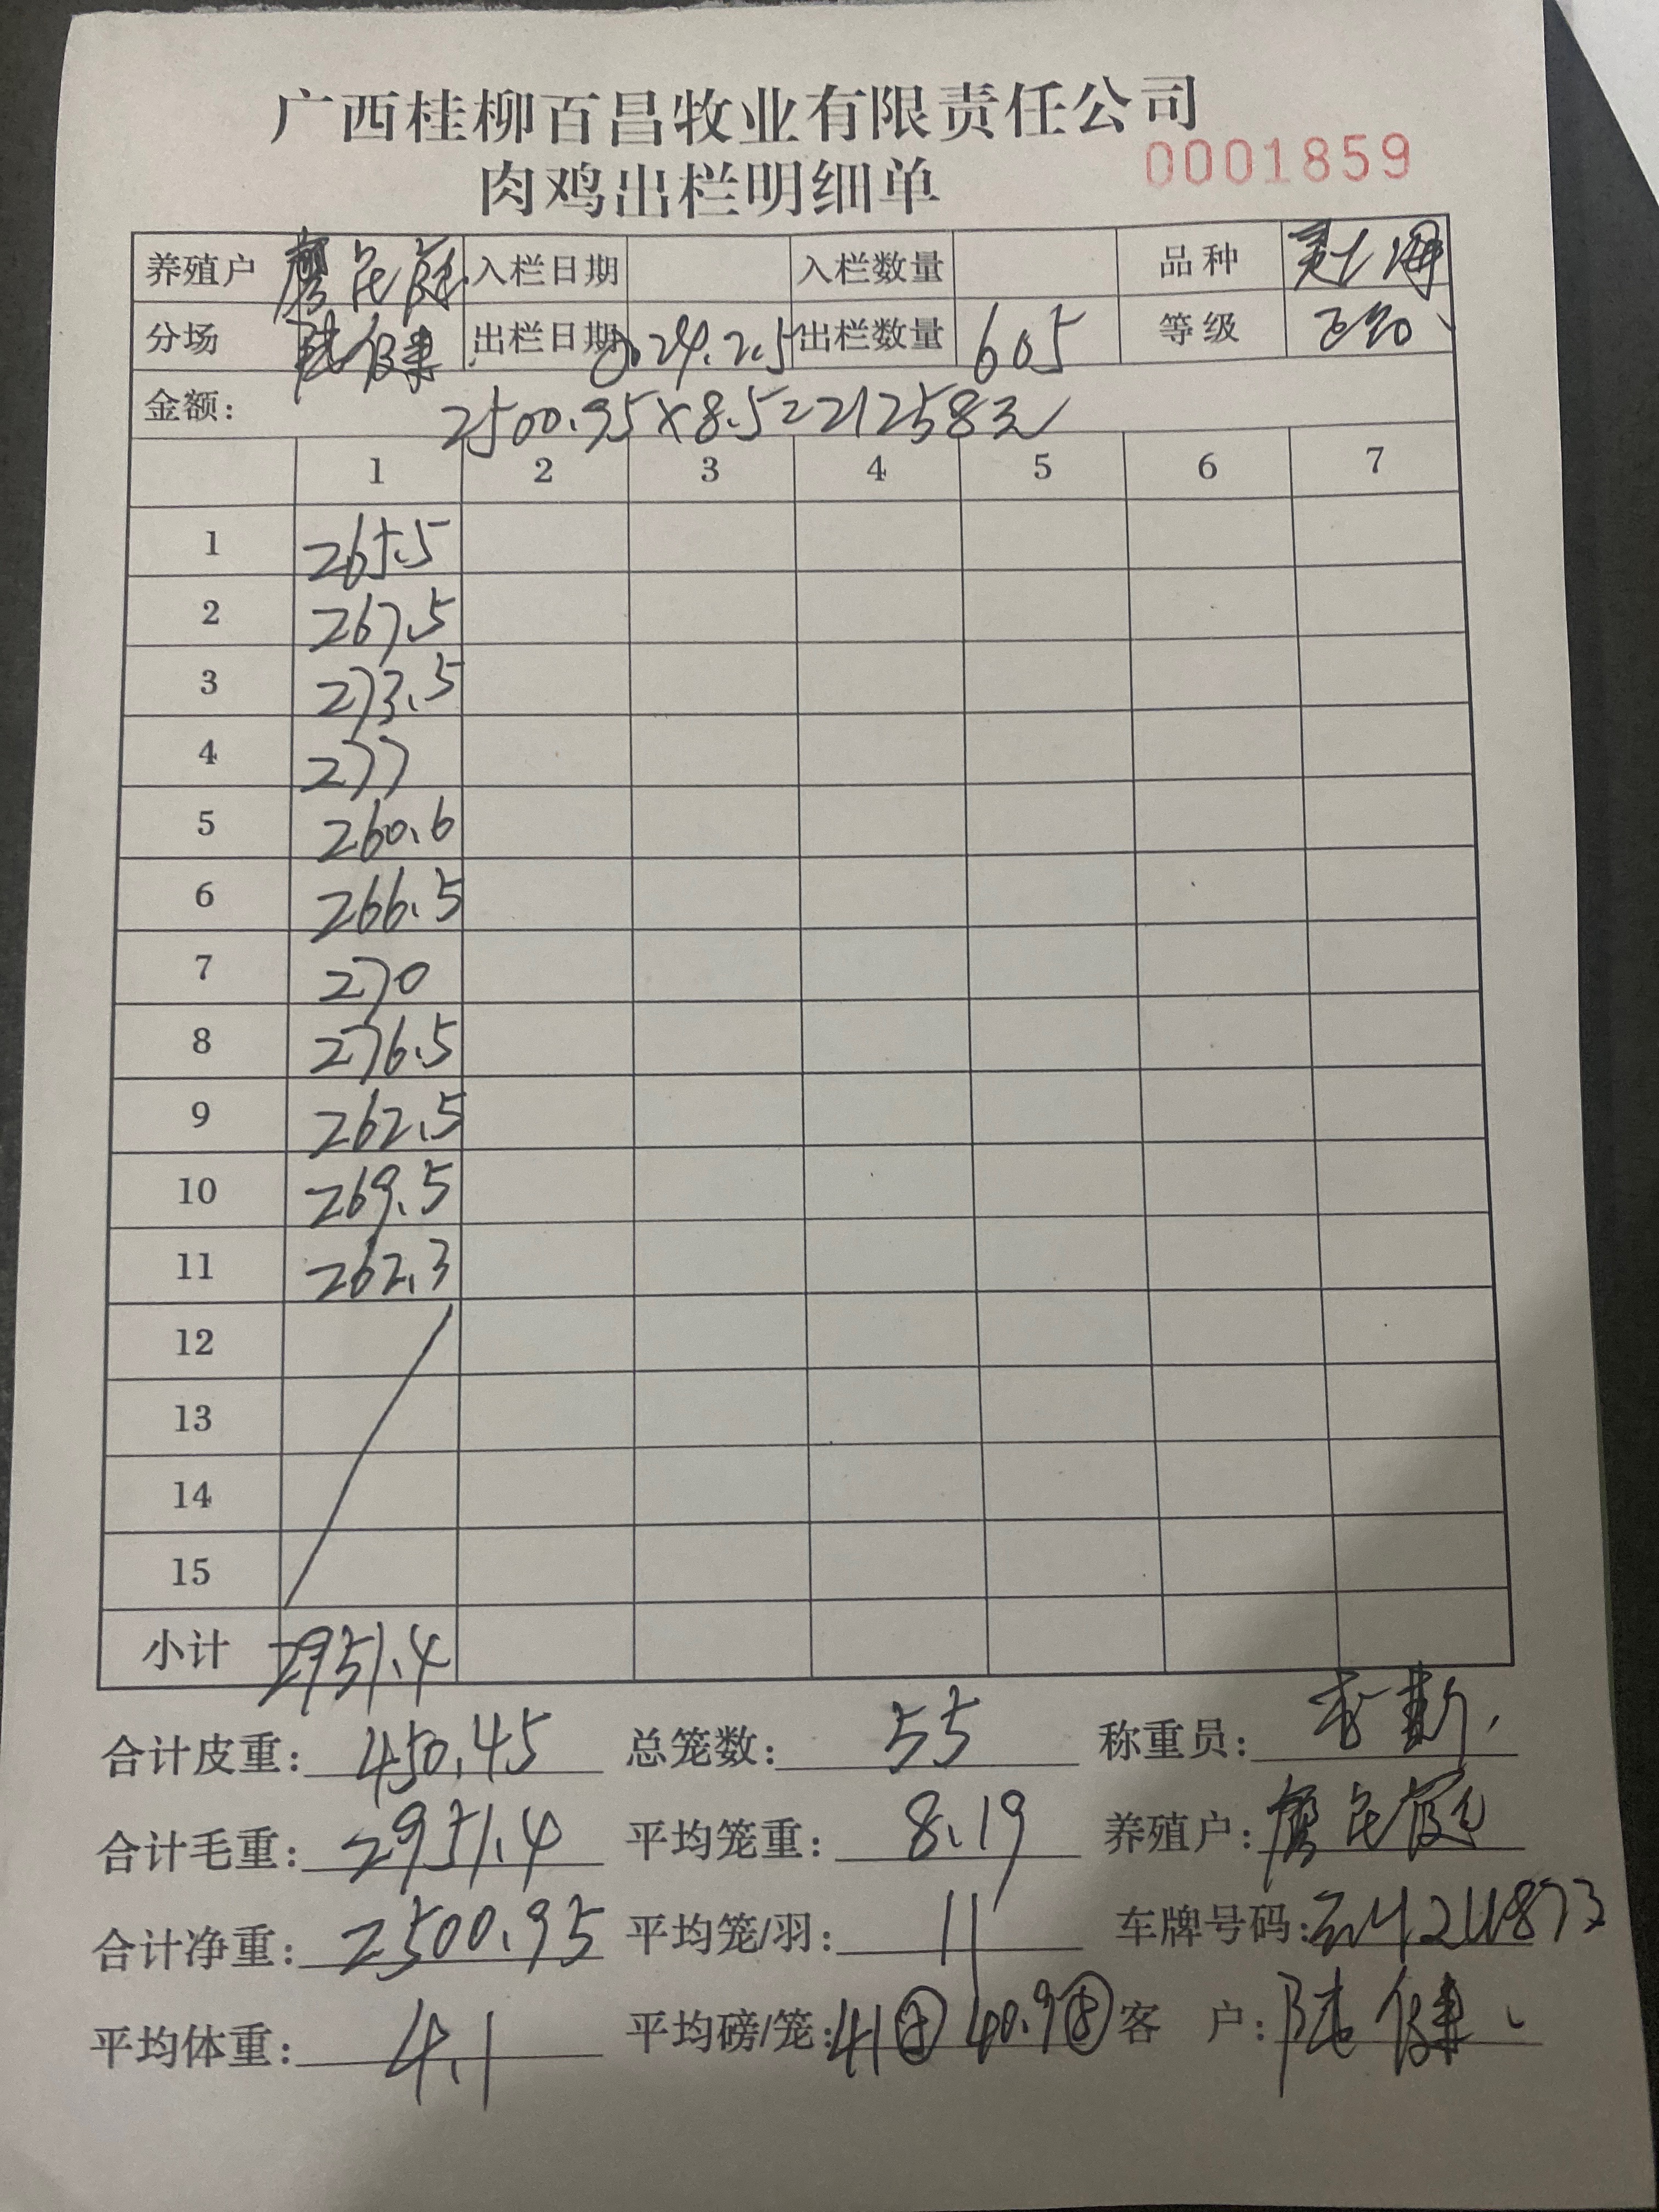 广西桂柳百昌牧业有限责任公司
肉鸡出栏明细单 0001859
养殖户 入栏日期 入栏数量 品种
分场 陆健 出栏日期 2024.2.5 出栏数量 605 等级
金额: 2500.95×8.5=21258元
1 2 3 4 5 6 7
1 265.5
2 267.5
3 273.5
4 277
5 260.6
6 266.5
7 270
8 276.5
9 262.5
10 269.5
11 262.3
12
13
14
15
小计 2951.4
合计皮重: 450.45 总笼数: 55 称重员:
合计毛重: 2951.4 平均笼重: 8.19 养殖户:
合计净重: 2500.95 平均笼/羽: 11 车牌号码:
平均体重: 4.1 平均磅/笼: 41 40.9 客 户: 陆健